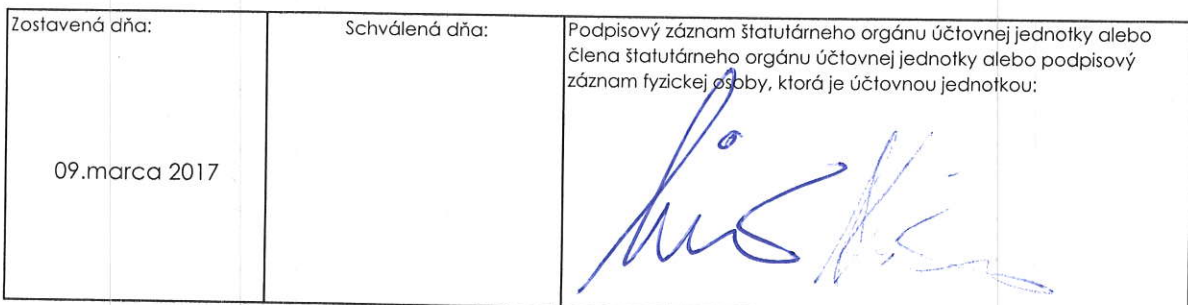 Zostavená dňa:
Schválená dňa:
Podpisový záznam štatutárneho orgánu účtovnej jednotky alebo
člena štatutárneho orgánu účtovnej jednotky alebo podpisový
záznam fyzickej osoby, ktorá je účtovnou jednotkou:
09.marca 2017